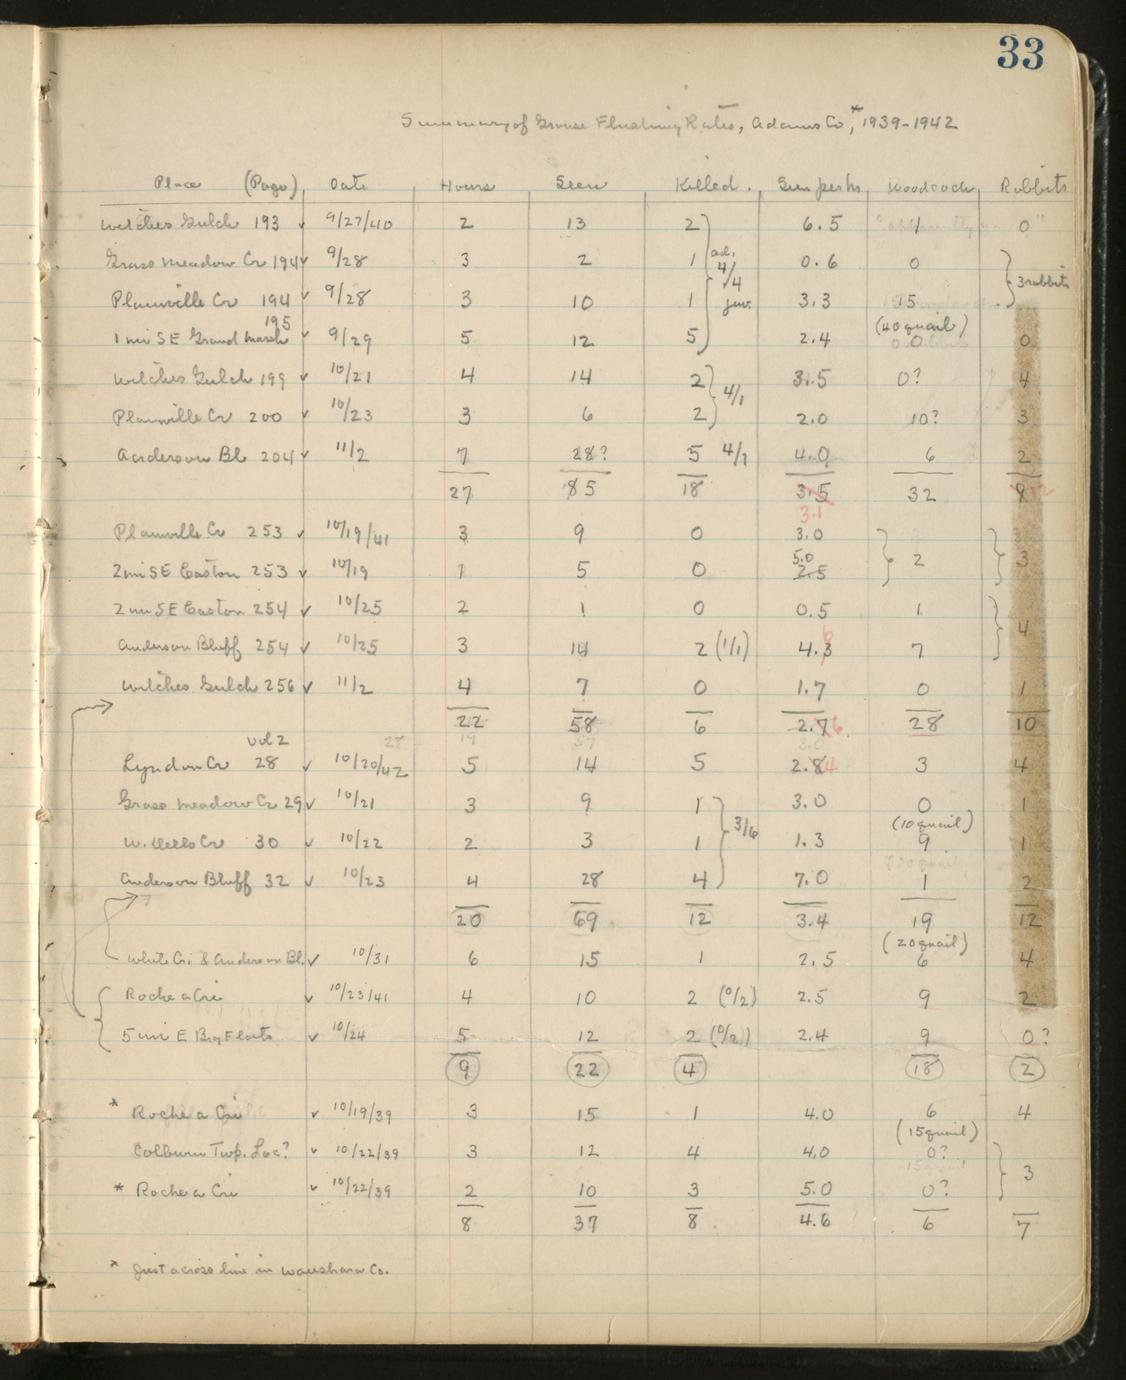 33
Summary of Grouse Flushing Rates, Adams Co*, 1939-1942
Place (Page) Date Hours Seen Killed Seen per hr Woodcock Rabbits
Witches Gulch 193 ✓ 9/27/40 2 13 2 6.5 1 0
ad. 4/4 juv.
Grass Meadow Cr 194 ✓ 9/28 3 2 1 0.6 0
3 rabbits
Plainville Cr 194 9/28 3 10 1 3.3 15
195 (40 quail)
1 mi SE Grand Marsh ✓ 9/29 5 12 5 2.4 0 0
Witches Gulch 199 ✓ 10/21 4 14 2 3.5 0? 4
4/1
Plainville Cr 200 ✓ 10/23 3 6 2 2.0 10? 3
Anderson Bl 204 ✓ 11/2 7 28? 5 4/1 4.0 6 2
27 85 18 3.5 32 12
3.1
Plainville Cr 253 ✓ 10/19/41 3 9 0 3.0
2 3
5.0
2 mi SE Easton 253 ✓ 10/19 1 5 0 2.5
2 mi SE Easton 254 ✓ 10/25 2 1 0 0.5 1
4
Anderson Bluff 254 ✓ 10/25 3 14 2 (1/1) 4.6 7
Witches Gulch 256 ✓ 11/2 4 7 0 1.7 0 1
22 58 6 2.6 28 10
vol 2 28 19 57 3.0
Lyndon Cr 28 ✓ 10/20/42 5 14 5 2.8 3 4
Grass Meadow Cr 29 ✓ 10/21 3 9 1 3.0 0 1
3/6 (10 quail)
W. Dells Cr 30 ✓ 10/22 2 3 1 1.3 9 1
Anderson Bluff 32 ✓ 10/23 4 28 4 7.0 1 2
20 69 12 3.4 19 12
(20 quail)
White Cr. & Anderson Bl. ✓ 10/31 6 15 1 2.5 6 4
Roche a Cri ✓ 10/23/41 4 10 2 (0/2) 2.5 9 2
5 mi E Big Flats ✓ 10/24 5 12 2 (0/2) 2.4 9 0?
9 22 4 18 2
* Roche a Cri ✓ 10/19/39 3 15 1 4.0 6 4
(15 quail)
Colburn Twp. Loc? ✓ 10/22/39 3 12 4 4.0 0?
3
* Roche a Cri ✓ 10/22/39 2 10 3 5.0 0?
8 37 8 4.6 6 7
* Just across line in Waushara Co.